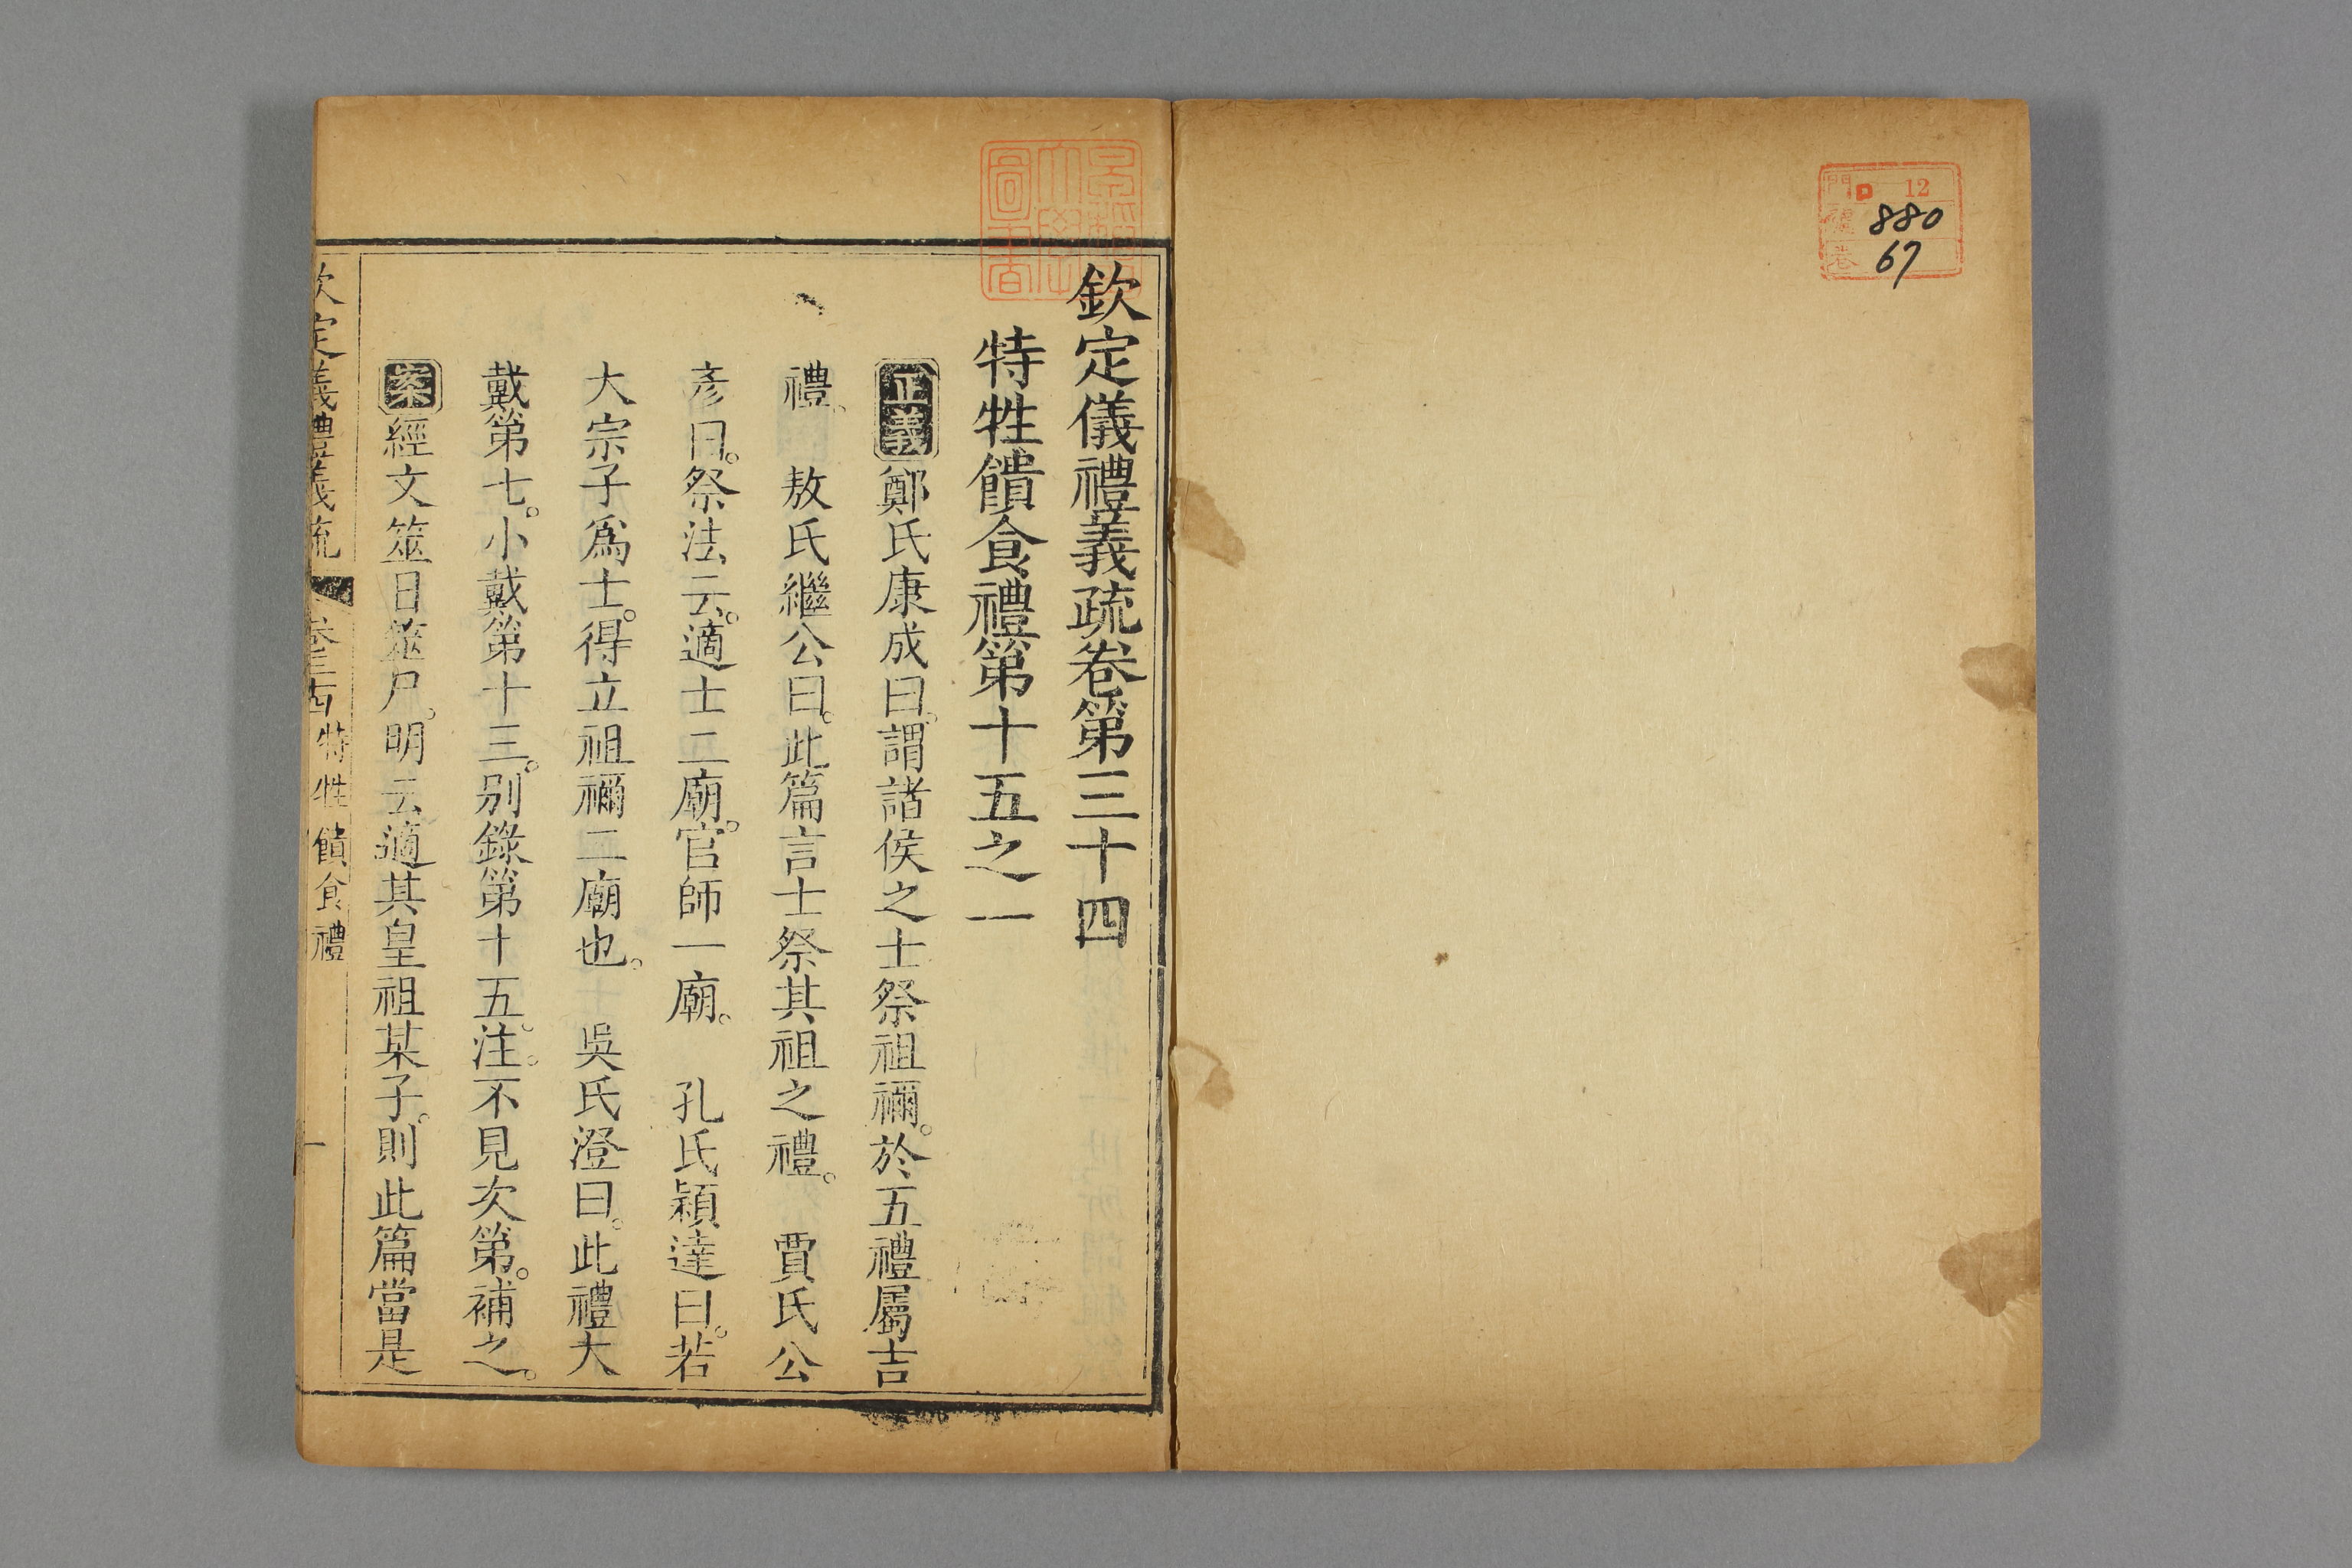 門 ロ 12
號 880
卷 67
早稻田大學圖書
欽定儀禮義疏卷第三十四
特牲饋食禮第十五之一
正義鄭氏康成曰。謂諸侯之士祭祖禰。於五禮屬吉
禮。 敖氏繼公曰。此篇言士祭其祖之禮。 賈氏公
彥曰。祭法云。適士二廟。官師一廟。 孔氏穎達曰。若
大宗子爲士。得立祖禰二廟也。 吳氏澄曰。此禮大
戴第七。小戴第十三。别錄第十五。注。不見次第。補之。
案經文筮日筮尸。明云適其皇祖某子。則此篇當是
欽定儀禮義疏 卷三十四 特牲饋食禮 一